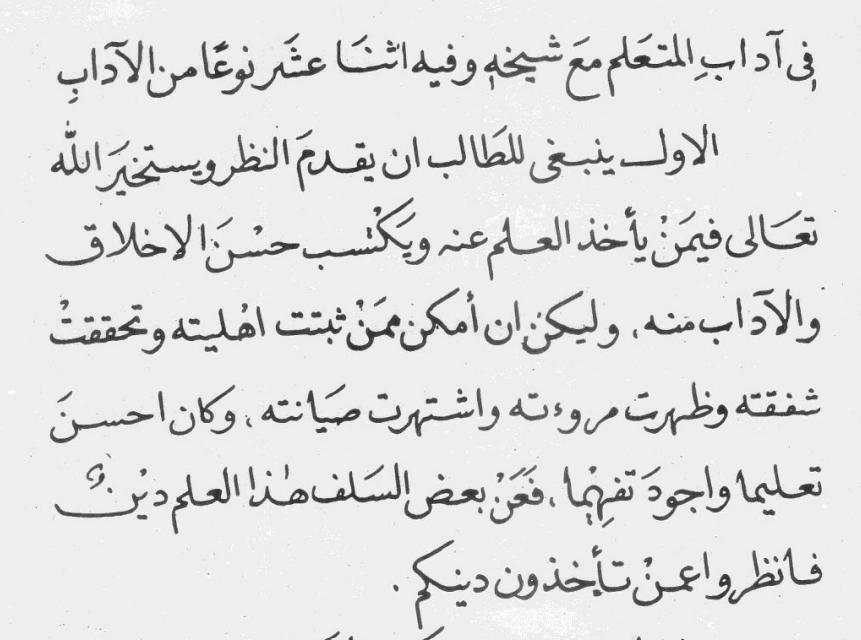 فِى آداب المتعَلم معَ شيخهِ وفيه اثنَا عشَر نوعًا من الآدابِ
الاول ينبغى للطَالب ان يقدمَ النظر ويستخيرَ الله
تعَالى فيمَنْ يأخذ العلم عنه ويَكْتسب حسْنَ الاخلاق
والآداب منه ، وليكن ان أمكن ممَنْ ثبتت اهْليته وتحققتْ
شفقته وظهرت مروءته واشتهرت صيَانته ، وكان احسنَ
تعليما واجودَ تفهِيْما ، فَعَنْ بعض السَلف هٰذا العلم ديْنٌ
فانظروا عمنْ تأخذون دينكم .